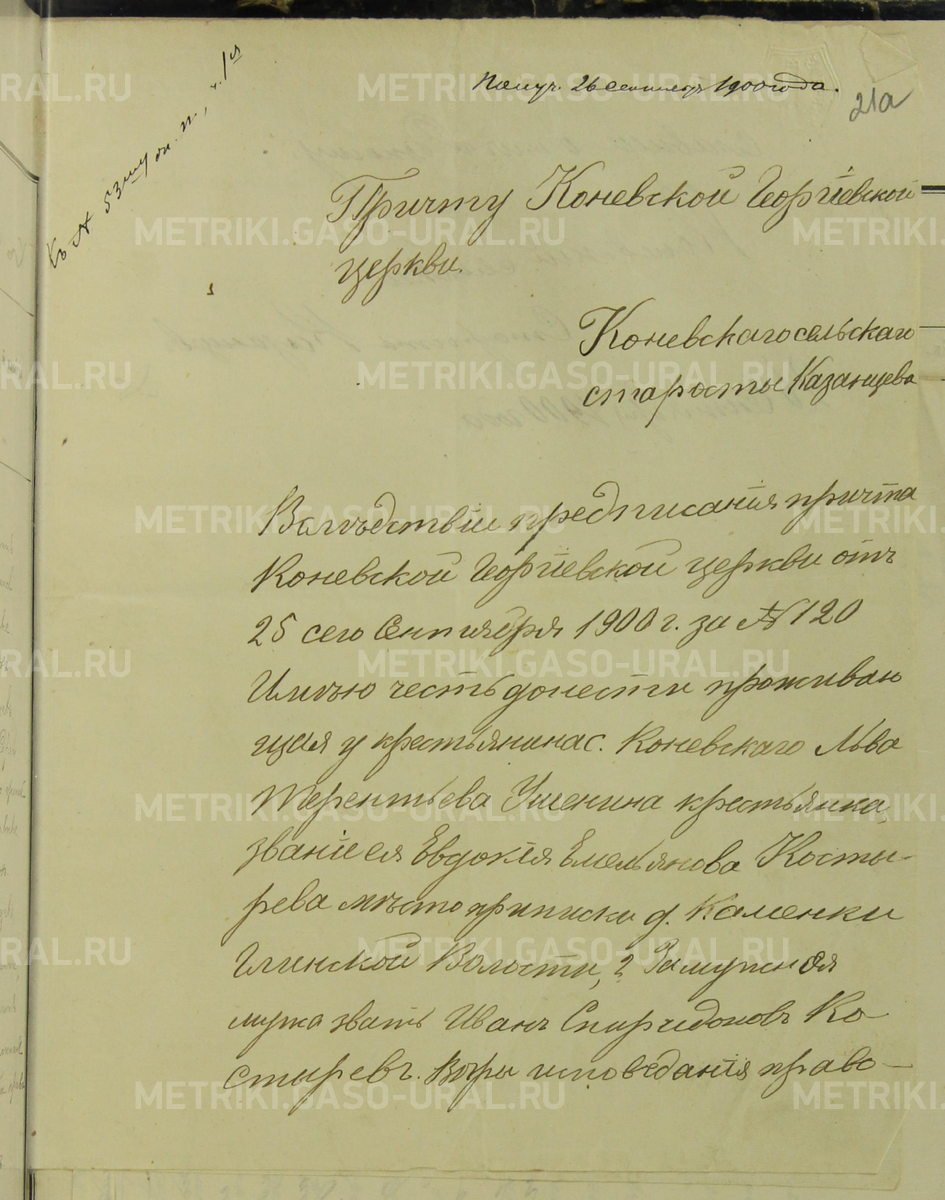 Къ № 53му
Получ. 26 сентябр 1900 года.
21а
Причту Коневской Георгіевской
церкви.
Коневскаго сельскаго
старосты Казанцева
Вслѣдствіи предписанія причта
Коневской Георгіевской церкви отъ
25 сего Сентября 1900 г. за № 120
Имѣю честь донести проживаю
щая у крестьянина с. Коневскаго Льва
Терентьева Уменина крестьянка,
званіе ея Евдокія Емельянова Косты-
рева мѣсто приписки д. Каменки
Глинской Волости, 2 Замужняя
мужа звать Иванъ Спиридоновъ Ко-
стыревъ. Вѣры исповедания право-
METRIKI.GASO-URAL.RU